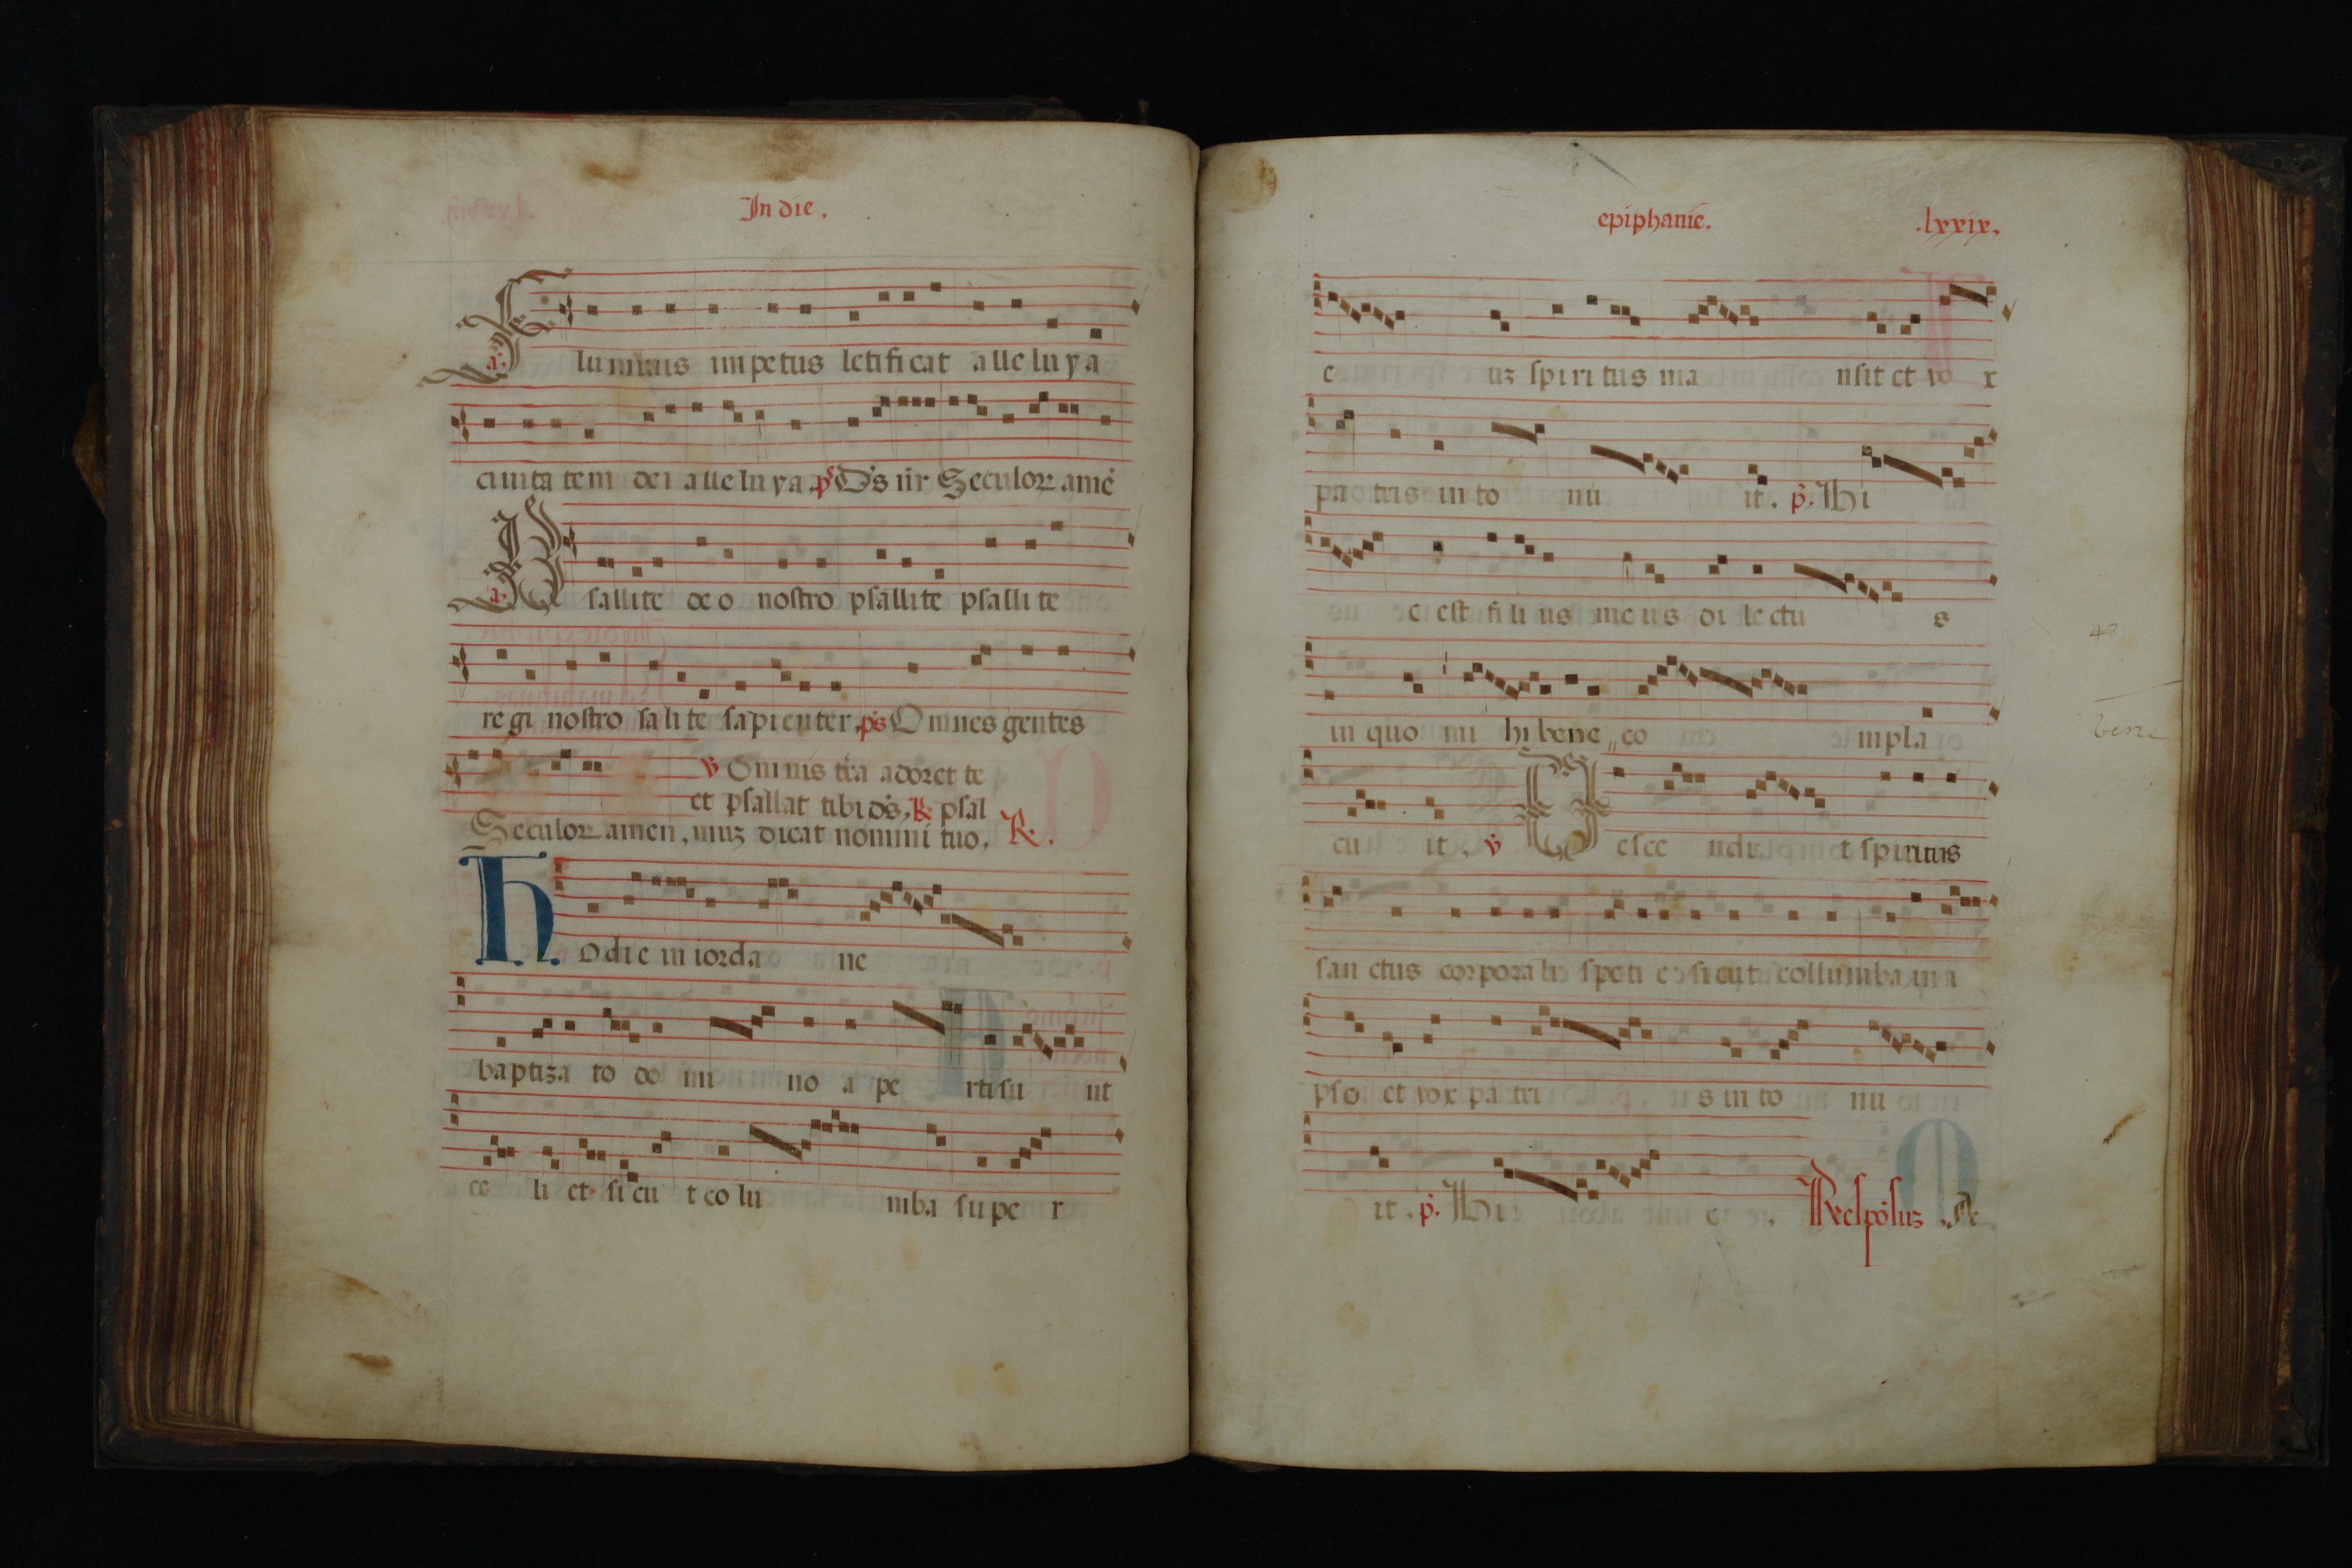 In die.
a. Fluminis impetus letificat alleluya
ciuitatem dei alleluya. ps Ds nr Seculoꝝ amē
a. Psallite deo nostro psallite psallite
regi nostro salite sapienter. ps Omnes gentes
v Omnis tr̄a adoret te
et psallat tibi ds. R psal
Seculoꝝ amen. muȝ dicat nomini tuo. R.
Hodie in iordane
baptizato domino apertisunt
celi et sicut columba super
epiphanie. .lxxix.
euȝ spiritus mansit et vox
patris intonuit. p. Hi
c est filius meus dilectus
in quo mihi bene compla
cuit. v Descendit spiritus
sanctus corporali speti e sicut collumba in i
pso et vox patris intonu
it. p. Hic. Respōsuȝ. De
48
bene